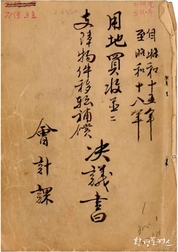 自昭和十五年
至昭和十八年
用地買收並ニ
支障物件移転補償
决議書
會計課